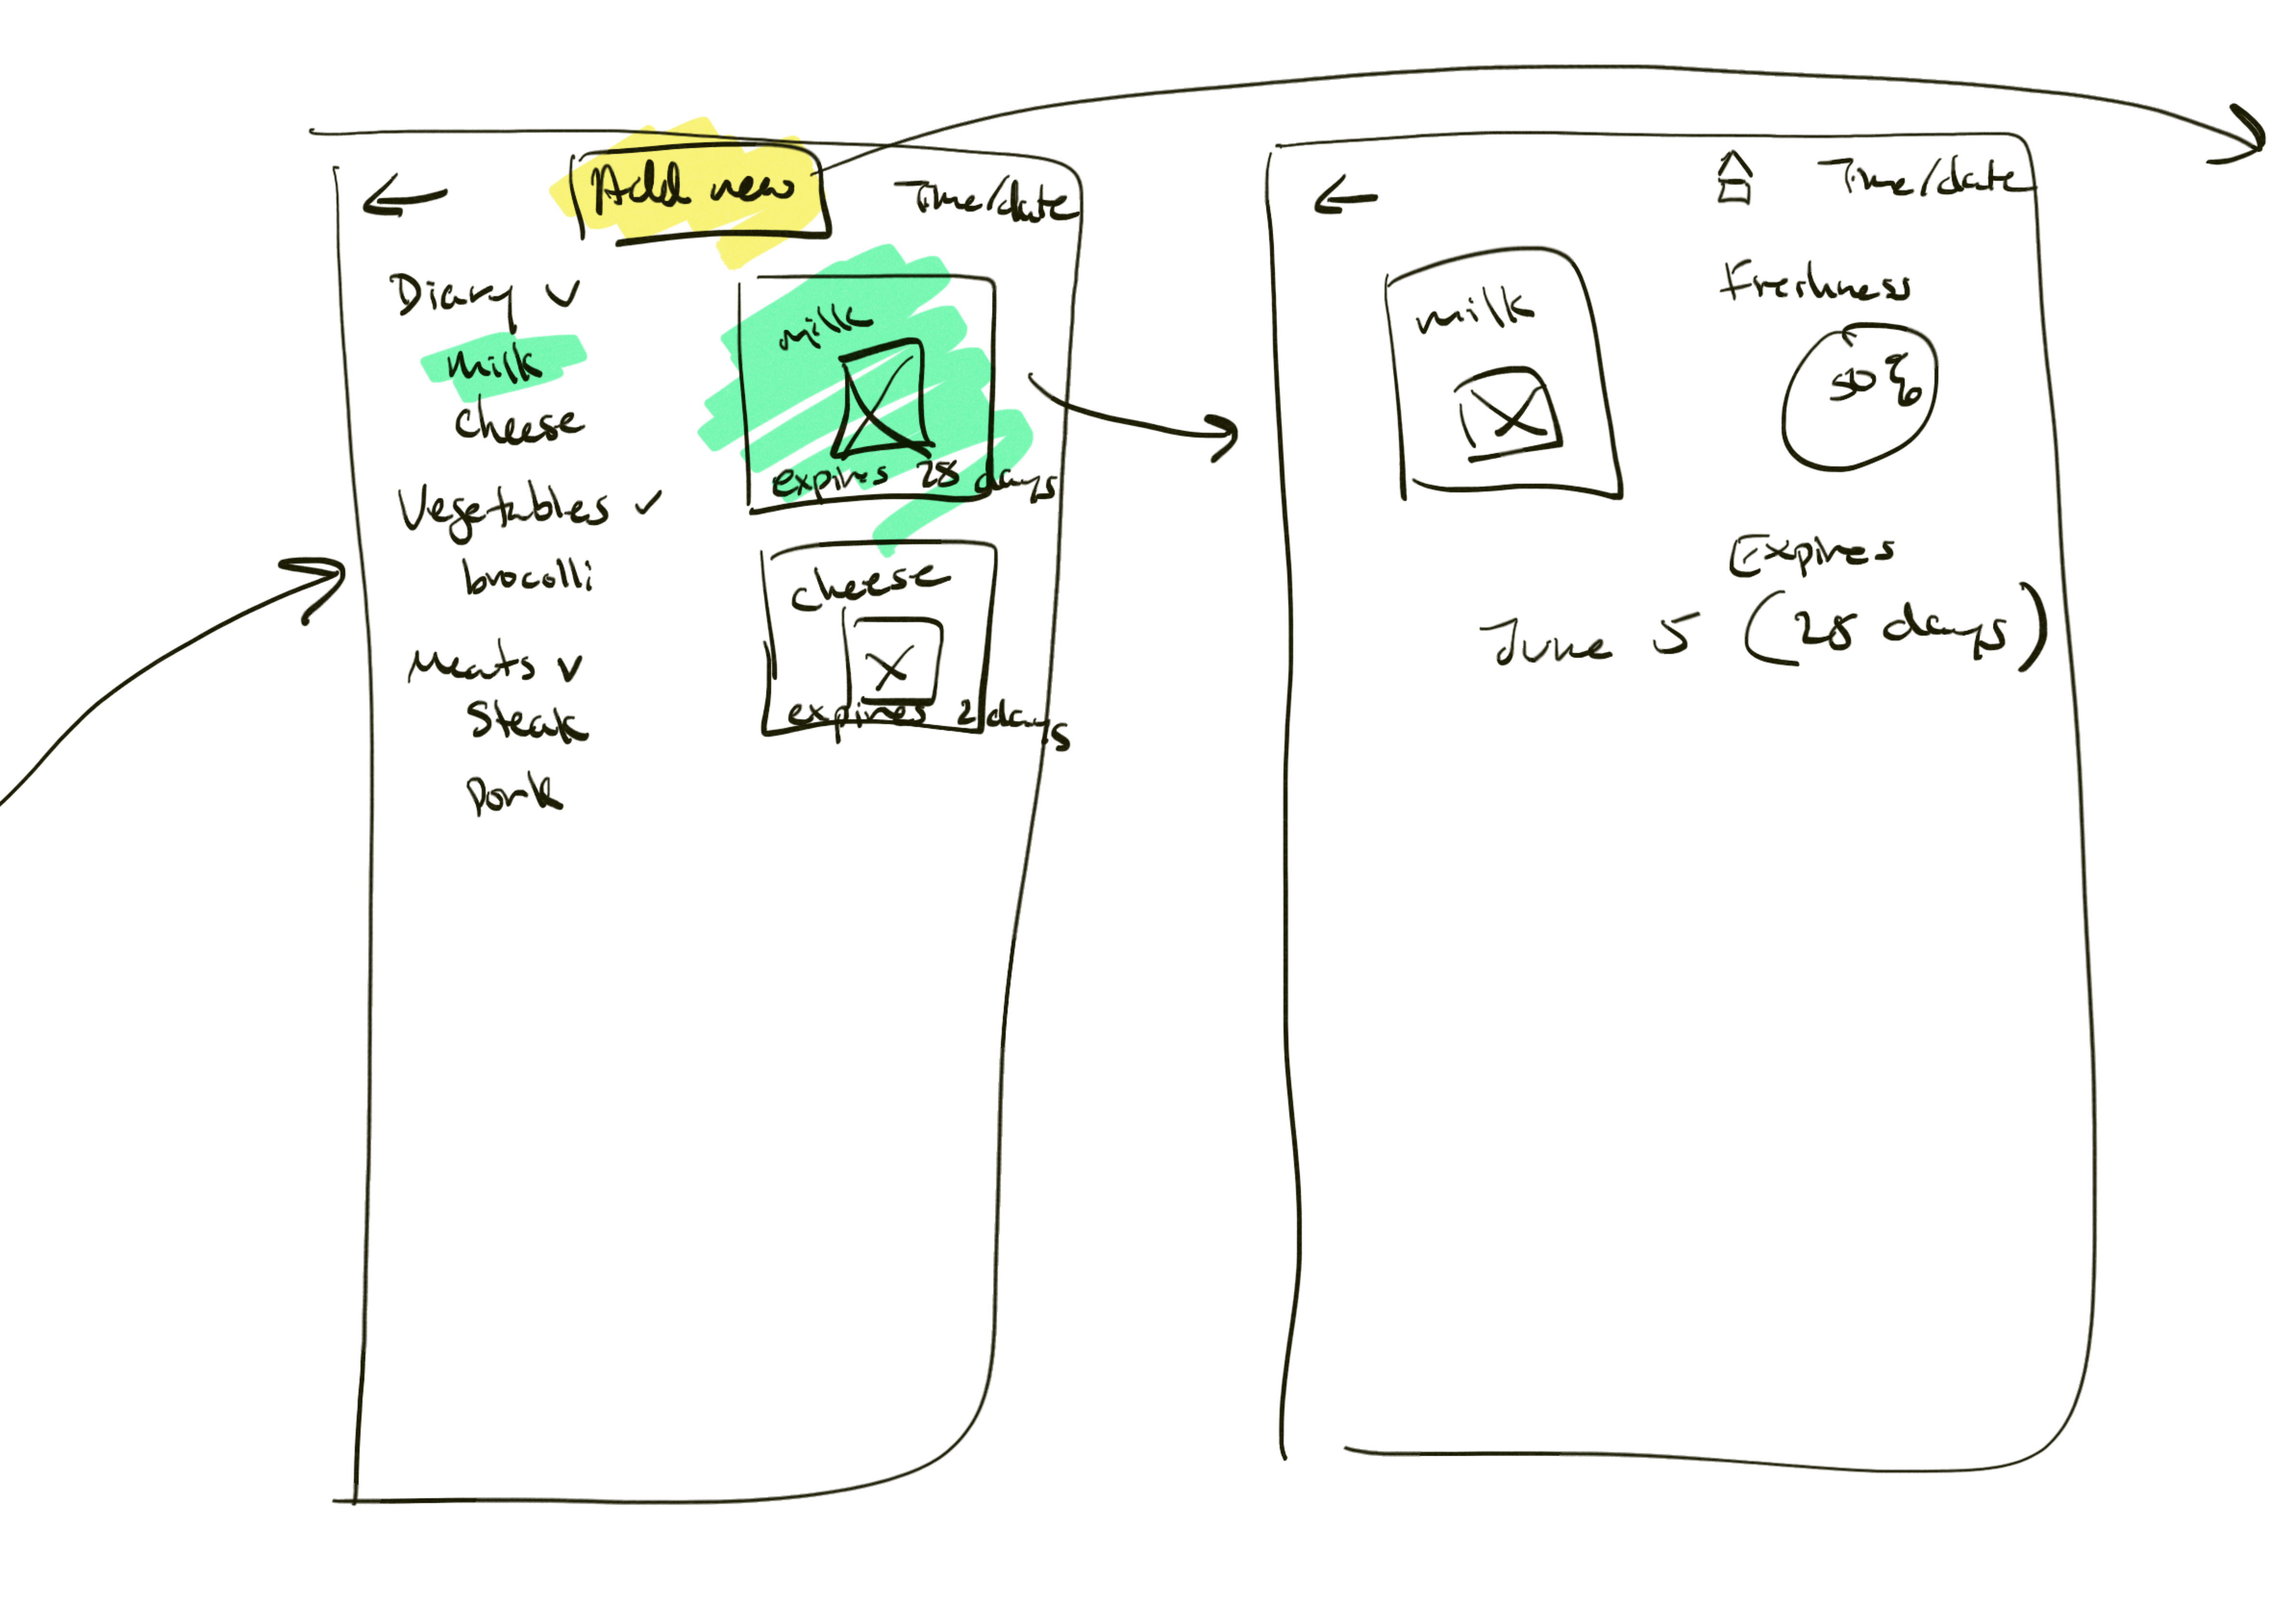 Add new
Time/date
Diary
milk
cheese
Vegetables
brocolli
Meats
Steak
Pork
milk
expires 28 days
cheese
expires 2 days
Time/date
milk
Freshness
50%
Expires
June 5 (28 days)